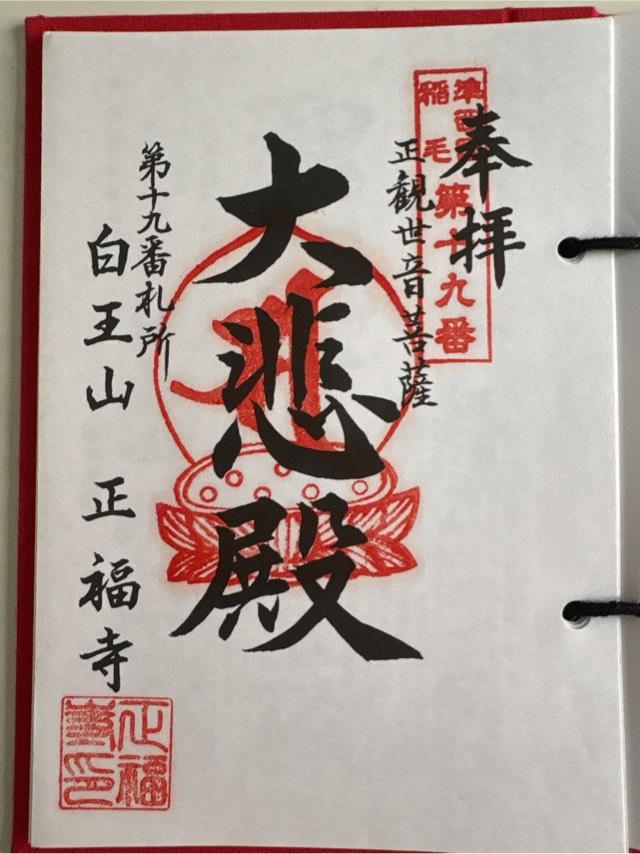 奉拝
準西国
稲毛
第十九番
正観世音菩薩
大悲殿
第十九番札所
白王山 正福寺
正福
寺印